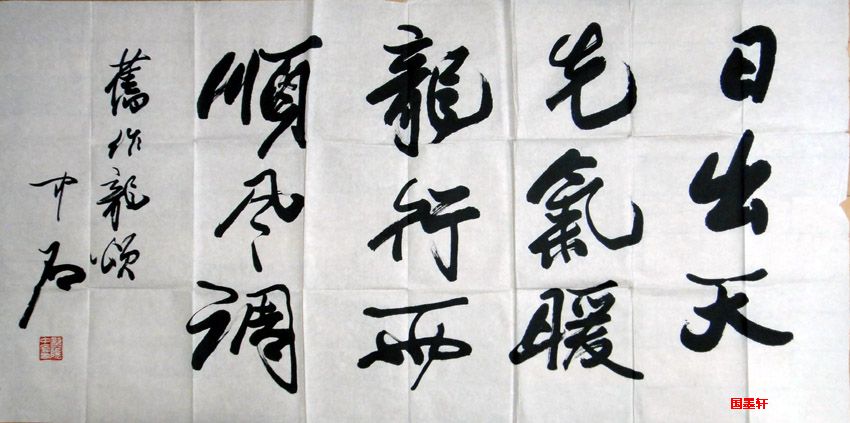 日出天
先氣暖
龍行雨
順风調
舊作龍頌
中石
国墨轩